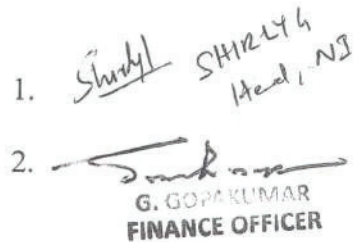 1. Shirly SHIRLY G
Head, NI
2.
G. GOPAKUMAR
FINANCE OFFICER